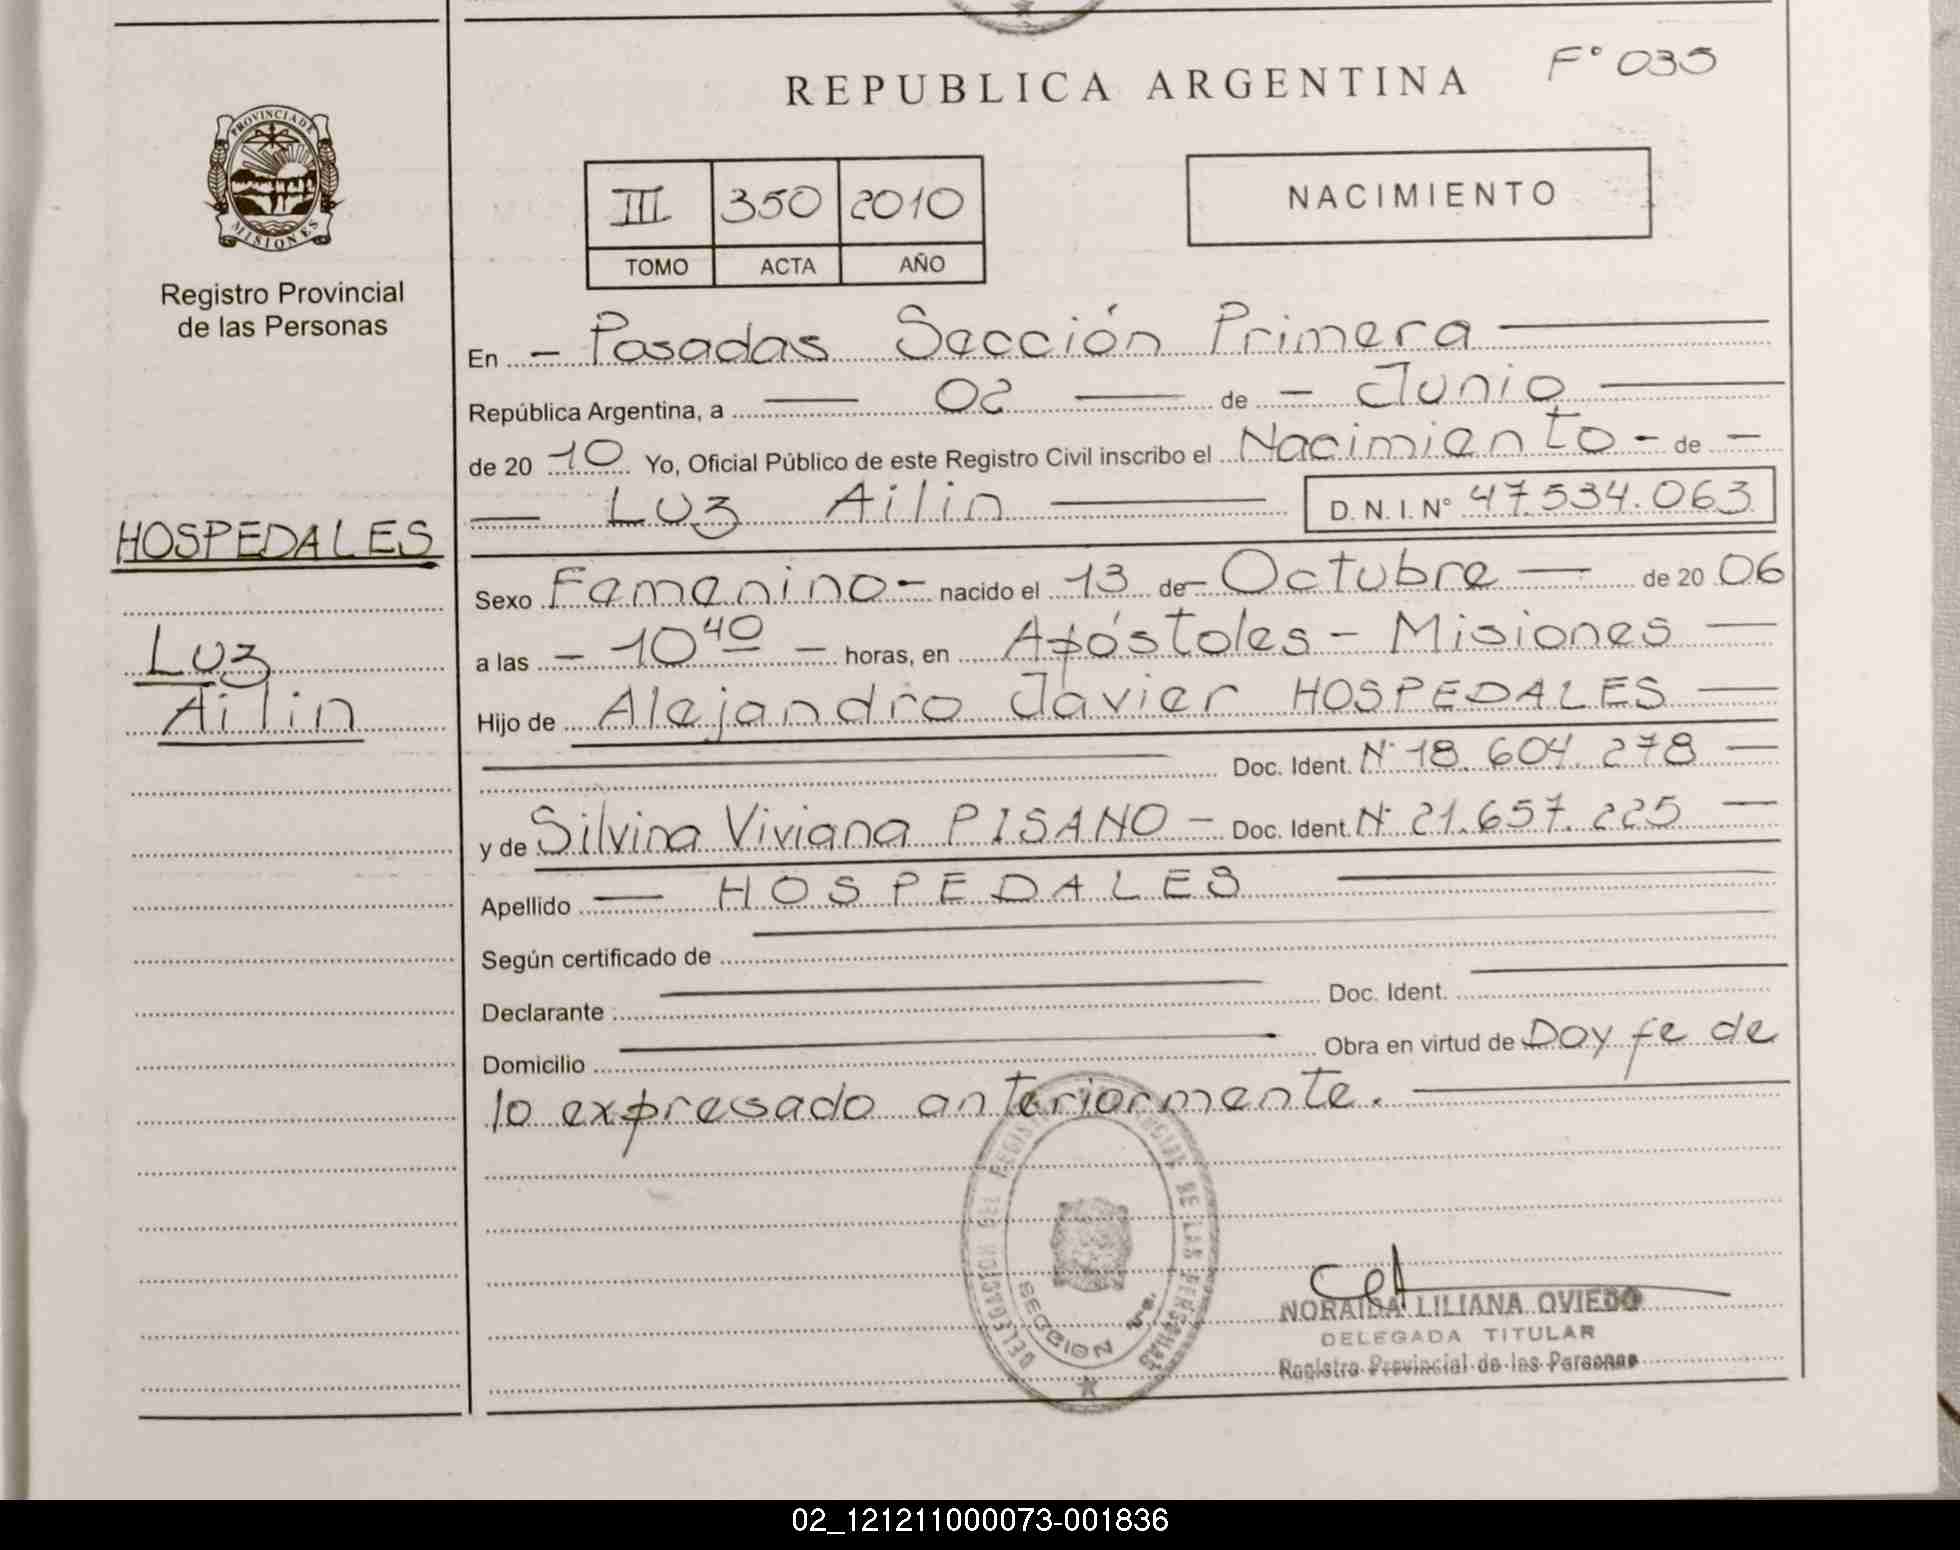 REPUBLICA ARGENTINA
F° 035
PROVINCIA DE MISIONES
Registro Provincial
de las Personas
III 350 2010
TOMO ACTA AÑO
NACIMIENTO
En - Posadas Sección Primera
República Argentina, a 02 de - Junio
de 20 10 Yo, Oficial Público de este Registro Civil inscribo el Nacimiento - de -
Luz Ailin D.N.I.N° 47.534.063
HOSPEDALES
Luz
Ailin
Sexo Femenino - nacido el 13 de - Octubre de 20 06
a las - 10 40 - horas, en Apóstoles - Misiones
Hijo de Alejandro Javier HOSPEDALES
Doc. Ident. N° 18.604.278
y de Silvina Viviana PISANO - Doc. Ident. N° 21.657.225
Apellido HOSPEDALES
Según certificado de
Declarante Doc. Ident.
Domicilio Obra en virtud de Doy fe de
lo expresado anteriormente.
DELEGACION DEL REGISTRO PROVINCIAL DE LAS PERSONAS
SECCION
NORAIDA LILIANA OVIEDO
DELEGADA TITULAR
Registro Provincial de las Personas
02_121211000073-001836